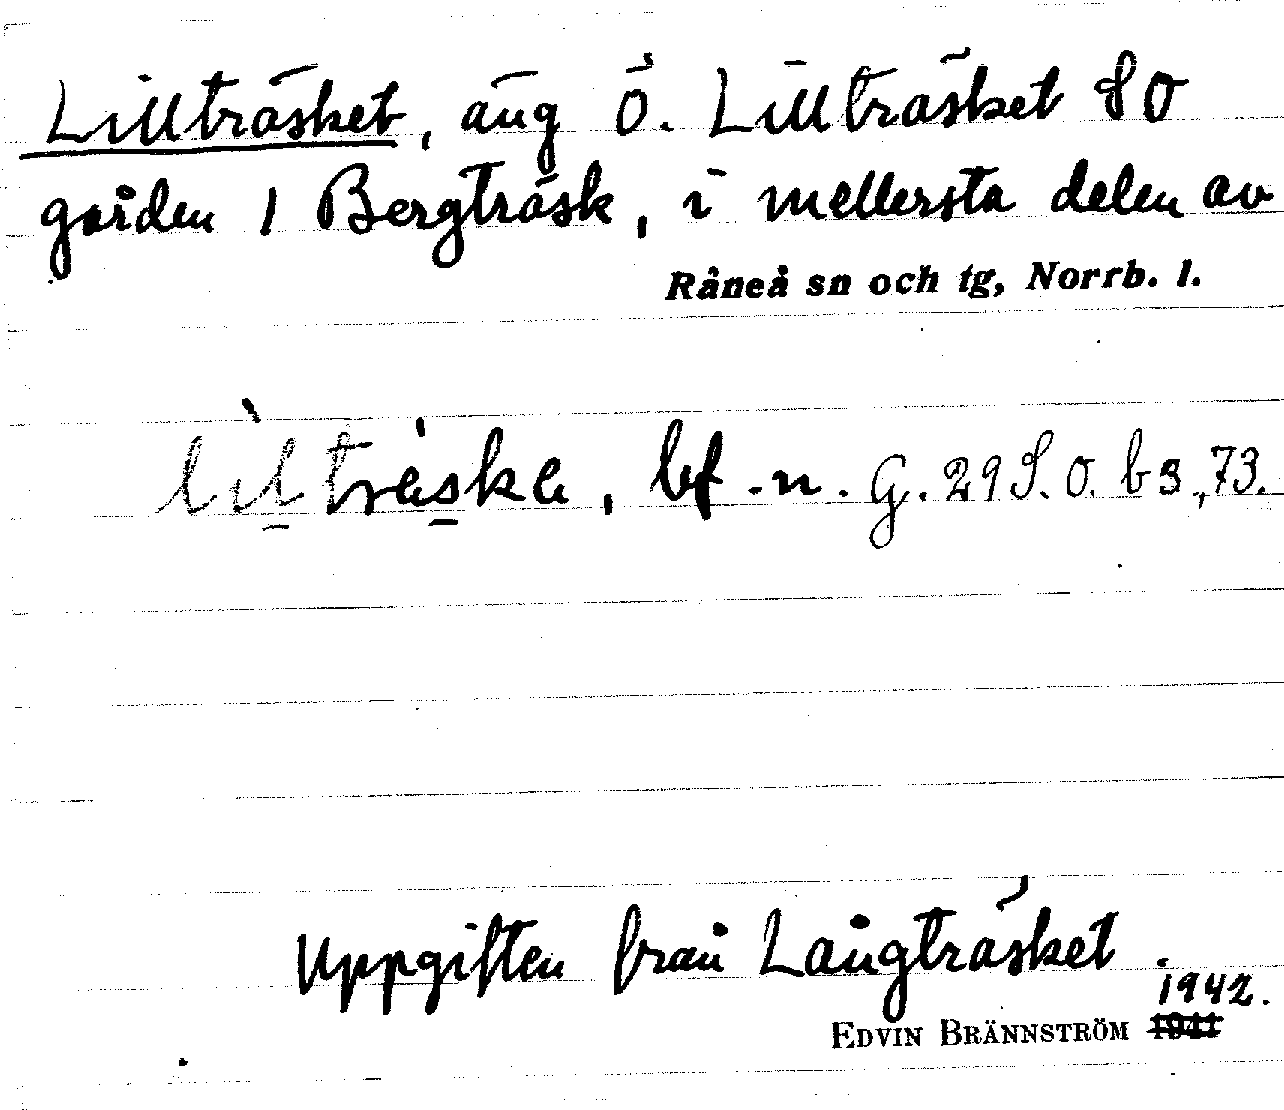 Lillträsket, äng Ö. Lillträsket SO
gården 1 Bergträsk, i mellersta delen av
Råneå sn och tg, Norrb. l.
lìltrèska, bf.n. G. 29 S. O. b 3, 73.
Uppgiften från Långträsket.
1942.
EDVIN BRÄNNSTRÖM 1941